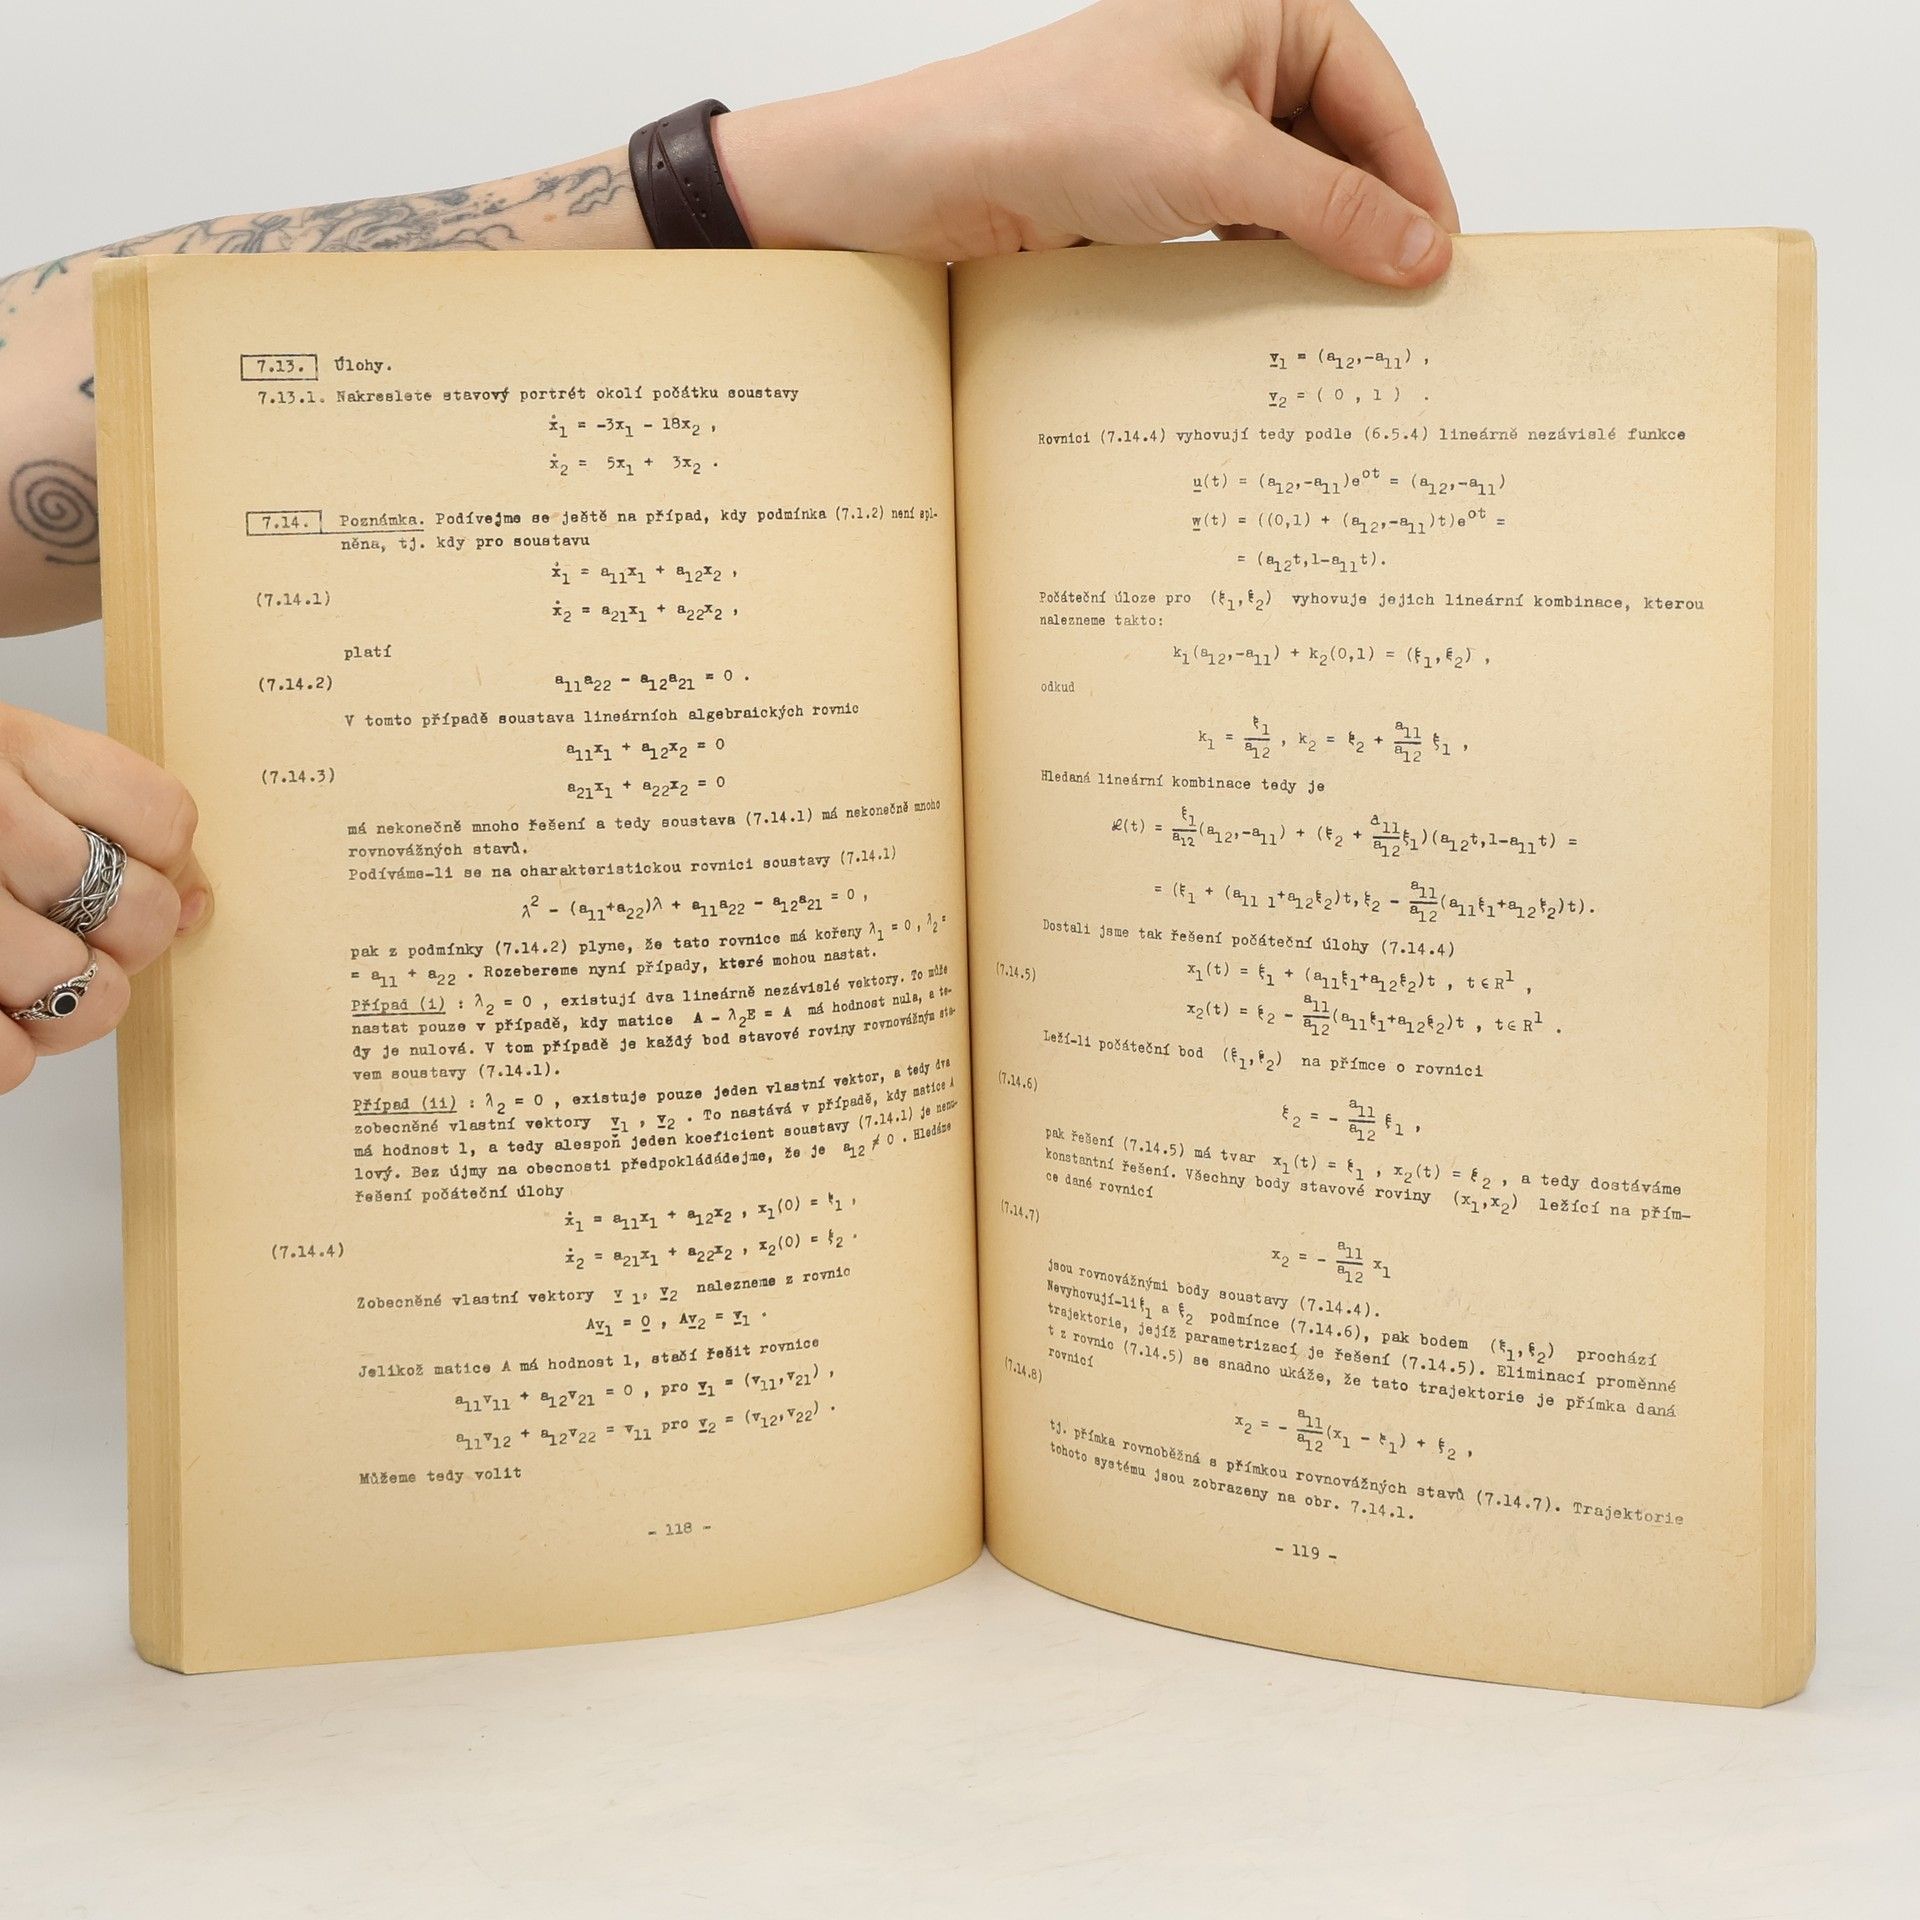 7.13. Úlohy.
7.13.1. Nakreslete stavový portrét okolí počátku soustavy
ẋ₁ = -3x₁ - 18x₂ ,
ẋ₂ = 5x₁ + 3x₂ .
7.14. Poznámka. Podívejme se ještě na případ, kdy podmínka (7.1.2) není spl-
něna, tj. kdy pro soustavu
ẋ₁ = a₁₁x₁ + a₁₂x₂ ,
(7.14.1)
ẋ₂ = a₂₁x₁ + a₂₂x₂ ,
platí
(7.14.2) a₁₁a₂₂ - a₁₂a₂₁ = 0 .
V tomto případě soustava lineárních algebraických rovnic
a₁₁x₁ + a₁₂x₂ = 0
(7.14.3)
a₂₁x₁ + a₂₂x₂ = 0
má nekonečně mnoho řešení a tedy soustava (7.14.1) má nekonečně mnoho
rovnovážných stavů.
Podíváme-li se na charakteristickou rovnici soustavy (7.14.1)
λ² - (a₁₁+a₂₂)λ + a₁₁a₂₂ - a₁₂a₂₁ = 0 ,
pak z podmínky (7.14.2) plyne, že tato rovnice má kořeny λ₁ = 0 , λ₂ =
= a₁₁ + a₂₂ . Rozebereme nyní případy, které mohou nastat.
Případ (i) : λ₂ = 0 , existují dva lineárně nezávislé vektory. To může
nastat pouze v případě, kdy matice A - λ₂E = A má hodnost nula, a te-
dy je nulová. V tom případě je každý bod stavové roviny rovnovážným sta-
vem soustavy (7.14.1).
Případ (ii) : λ₂ = 0 , existuje pouze jeden vlastní vektor, a tedy dva
zobecněné vlastní vektory v₁ , v₂ . To nastává v případě, kdy matice A
má hodnost 1, a tedy alespoň jeden koeficient soustavy (7.14.1) je nenu-
lový. Bez újmy na obecnosti předpokládádejme, že je a₁₂ ≠ 0 . Hledáme
řešení počáteční úlohy
ẋ₁ = a₁₁x₁ + a₁₂x₂ , x₁(0) = ξ₁ ,
(7.14.4)
ẋ₂ = a₂₁x₁ + a₂₂x₂ , x₂(0) = ξ₂ .
Zobecněné vlastní vektory v₁, v₂ nalezneme z rovnic
Av₁ = 0 , Av₂ = v₁ .
Jelikož matice A má hodnost 1, stačí řešit rovnice
a₁₁v₁₁ + a₁₂v₂₁ = 0 , pro v₁ = (v₁₁,v₂₁) ,
a₁₁v₁₂ + a₁₂v₂₂ = v₁₁ pro v₂ = (v₁₂,v₂₂) .
Můžeme tedy volit
- 118 -
v₁ = (a₁₂,-a₁₁) ,
v₂ = ( 0 , 1 ) .
Rovnici (7.14.4) vyhovují tedy podle (6.5.4) lineárně nezávislé funkce
u(t) = (a₁₂,-a₁₁)e^ot = (a₁₂,-a₁₁)
w(t) = ((0,1) + (a₁₂,-a₁₁)t)e^ot =
= (a₁₂t,1-a₁₁t).
Počáteční úloze pro (ξ₁,ξ₂) vyhovuje jejich lineární kombinace, kterou
nalezneme takto:
k₁(a₁₂,-a₁₁) + k₂(0,1) = (ξ₁,ξ₂) ,
odkud
k₁ = ξ₁/a₁₂ , k₂ = ξ₂ + a₁₁/a₁₂ ξ₁ ,
Hledaná lineární kombinace tedy je
ℓ(t) = ξ₁/a₁₂(a₁₂,-a₁₁) + (ξ₂ + a₁₁/a₁₂ξ₁)(a₁₂t,1-a₁₁t) =
= (ξ₁ + (a₁₁ 1+a₁₂ξ₂)t,ξ₂ - a₁₁/a₁₂(a₁₁ξ₁+a₁₂ξ₂)t).
Dostali jsme tak řešení počáteční úlohy (7.14.4)
(7.14.5) x₁(t) = ξ₁ + (a₁₁ξ₁+a₁₂ξ₂)t , t ∈ R¹ ,
x₂(t) = ξ₂ - a₁₁/a₁₂(a₁₁ξ₁+a₁₂ξ₂)t , t ∈ R¹ .
Leží-li počáteční bod (ξ₁,ξ₂) na přímce o rovnici
(7.14.6) ξ₂ = - a₁₁/a₁₂ ξ₁ ,
pak řešení (7.14.5) má tvar x₁(t) = ξ₁ , x₂(t) = ξ₂ , a tedy dostáváme
konstantní řešení. Všechny body stavové roviny (x₁,x₂) ležící na přím-
ce dané rovnicí
(7.14.7) x₂ = - a₁₁/a₁₂ x₁
jsou rovnovážnými body soustavy (7.14.4).
Nevyhovují-li ξ₁ a ξ₂ podmínce (7.14.6), pak bodem (ξ₁,ξ₂) prochází
trajektorie, jejíž parametrizací je řešení (7.14.5). Eliminací proměnné
t z rovnic (7.14.5) se snadno ukáže, že tato trajektorie je přímka daná
rovnicí
(7.14.8) x₂ = - a₁₁/a₁₂(x₁ - ξ₁) + ξ₂ ,
tj. přímka rovnoběžná s přímkou rovnovážných stavů (7.14.7). Trajektorie
tohoto systému jsou zobrazeny na obr. 7.14.1.
- 119 -